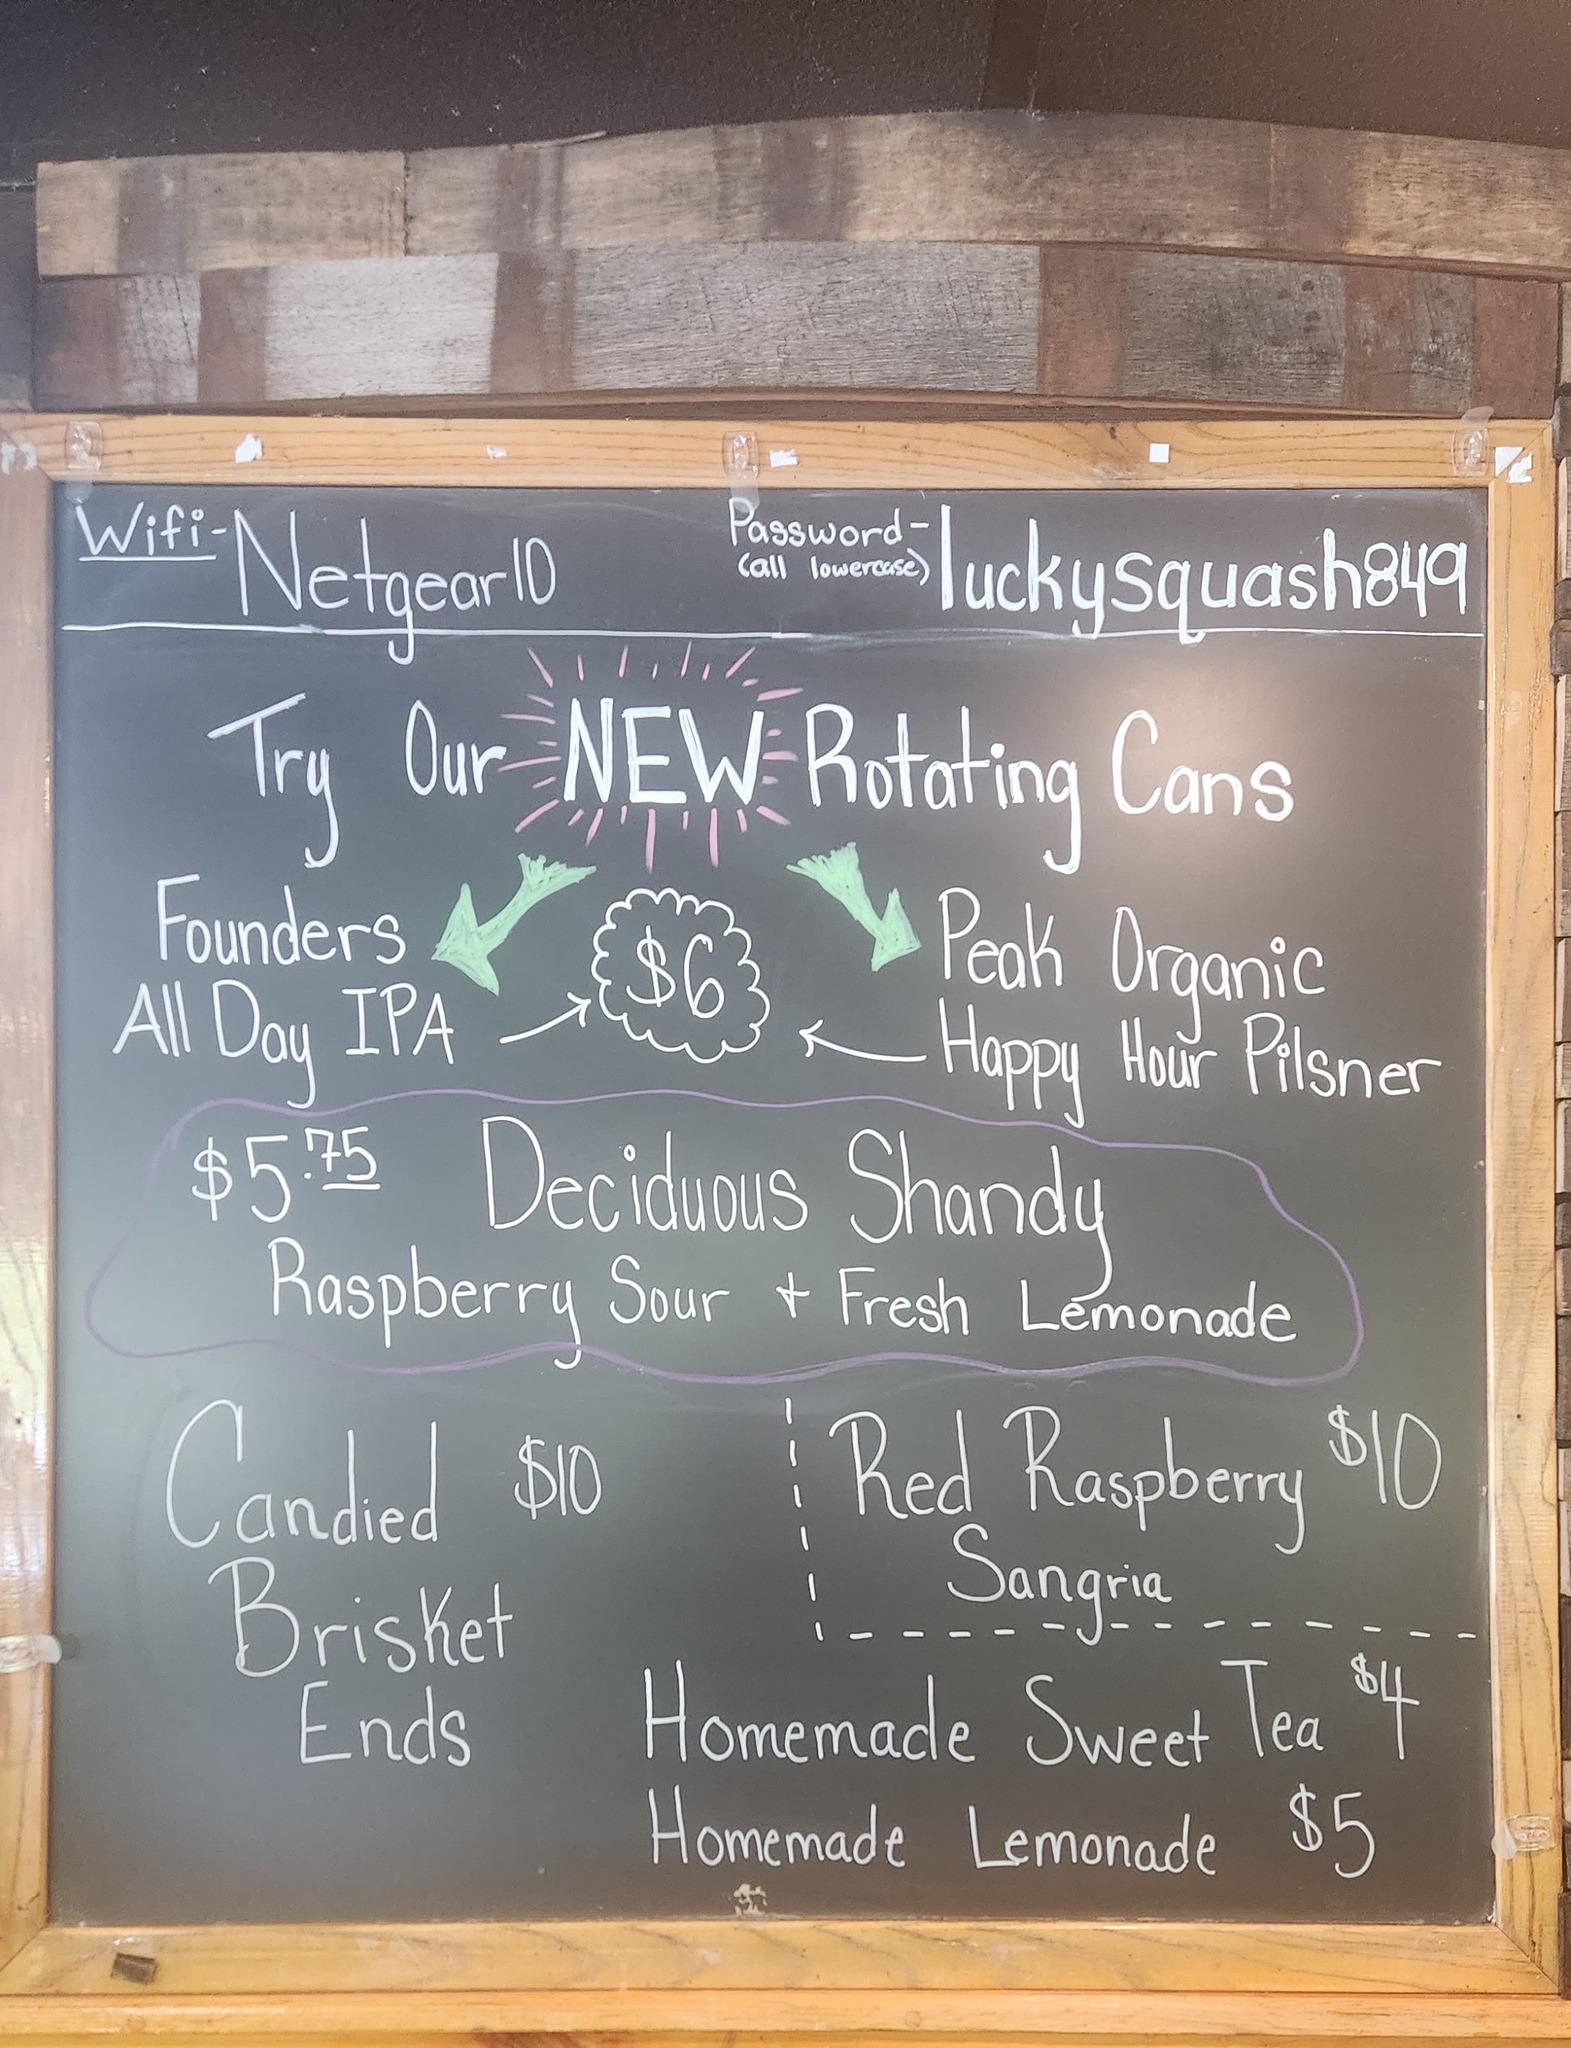 Wifi- Netgear10
Password- luckysquash849
(all lowercase)
Try Our NEW Rotating Cans
Founders
All Day IPA
$6
Peak Organic
Happy Hour Pilsner
$5.75 Deciduous Shandy
Raspberry Sour + Fresh Lemonade
Candied $10
Brisket
Ends
Red Raspberry $10
Sangria
Homemade Sweet Tea $4
Homemade Lemonade $5